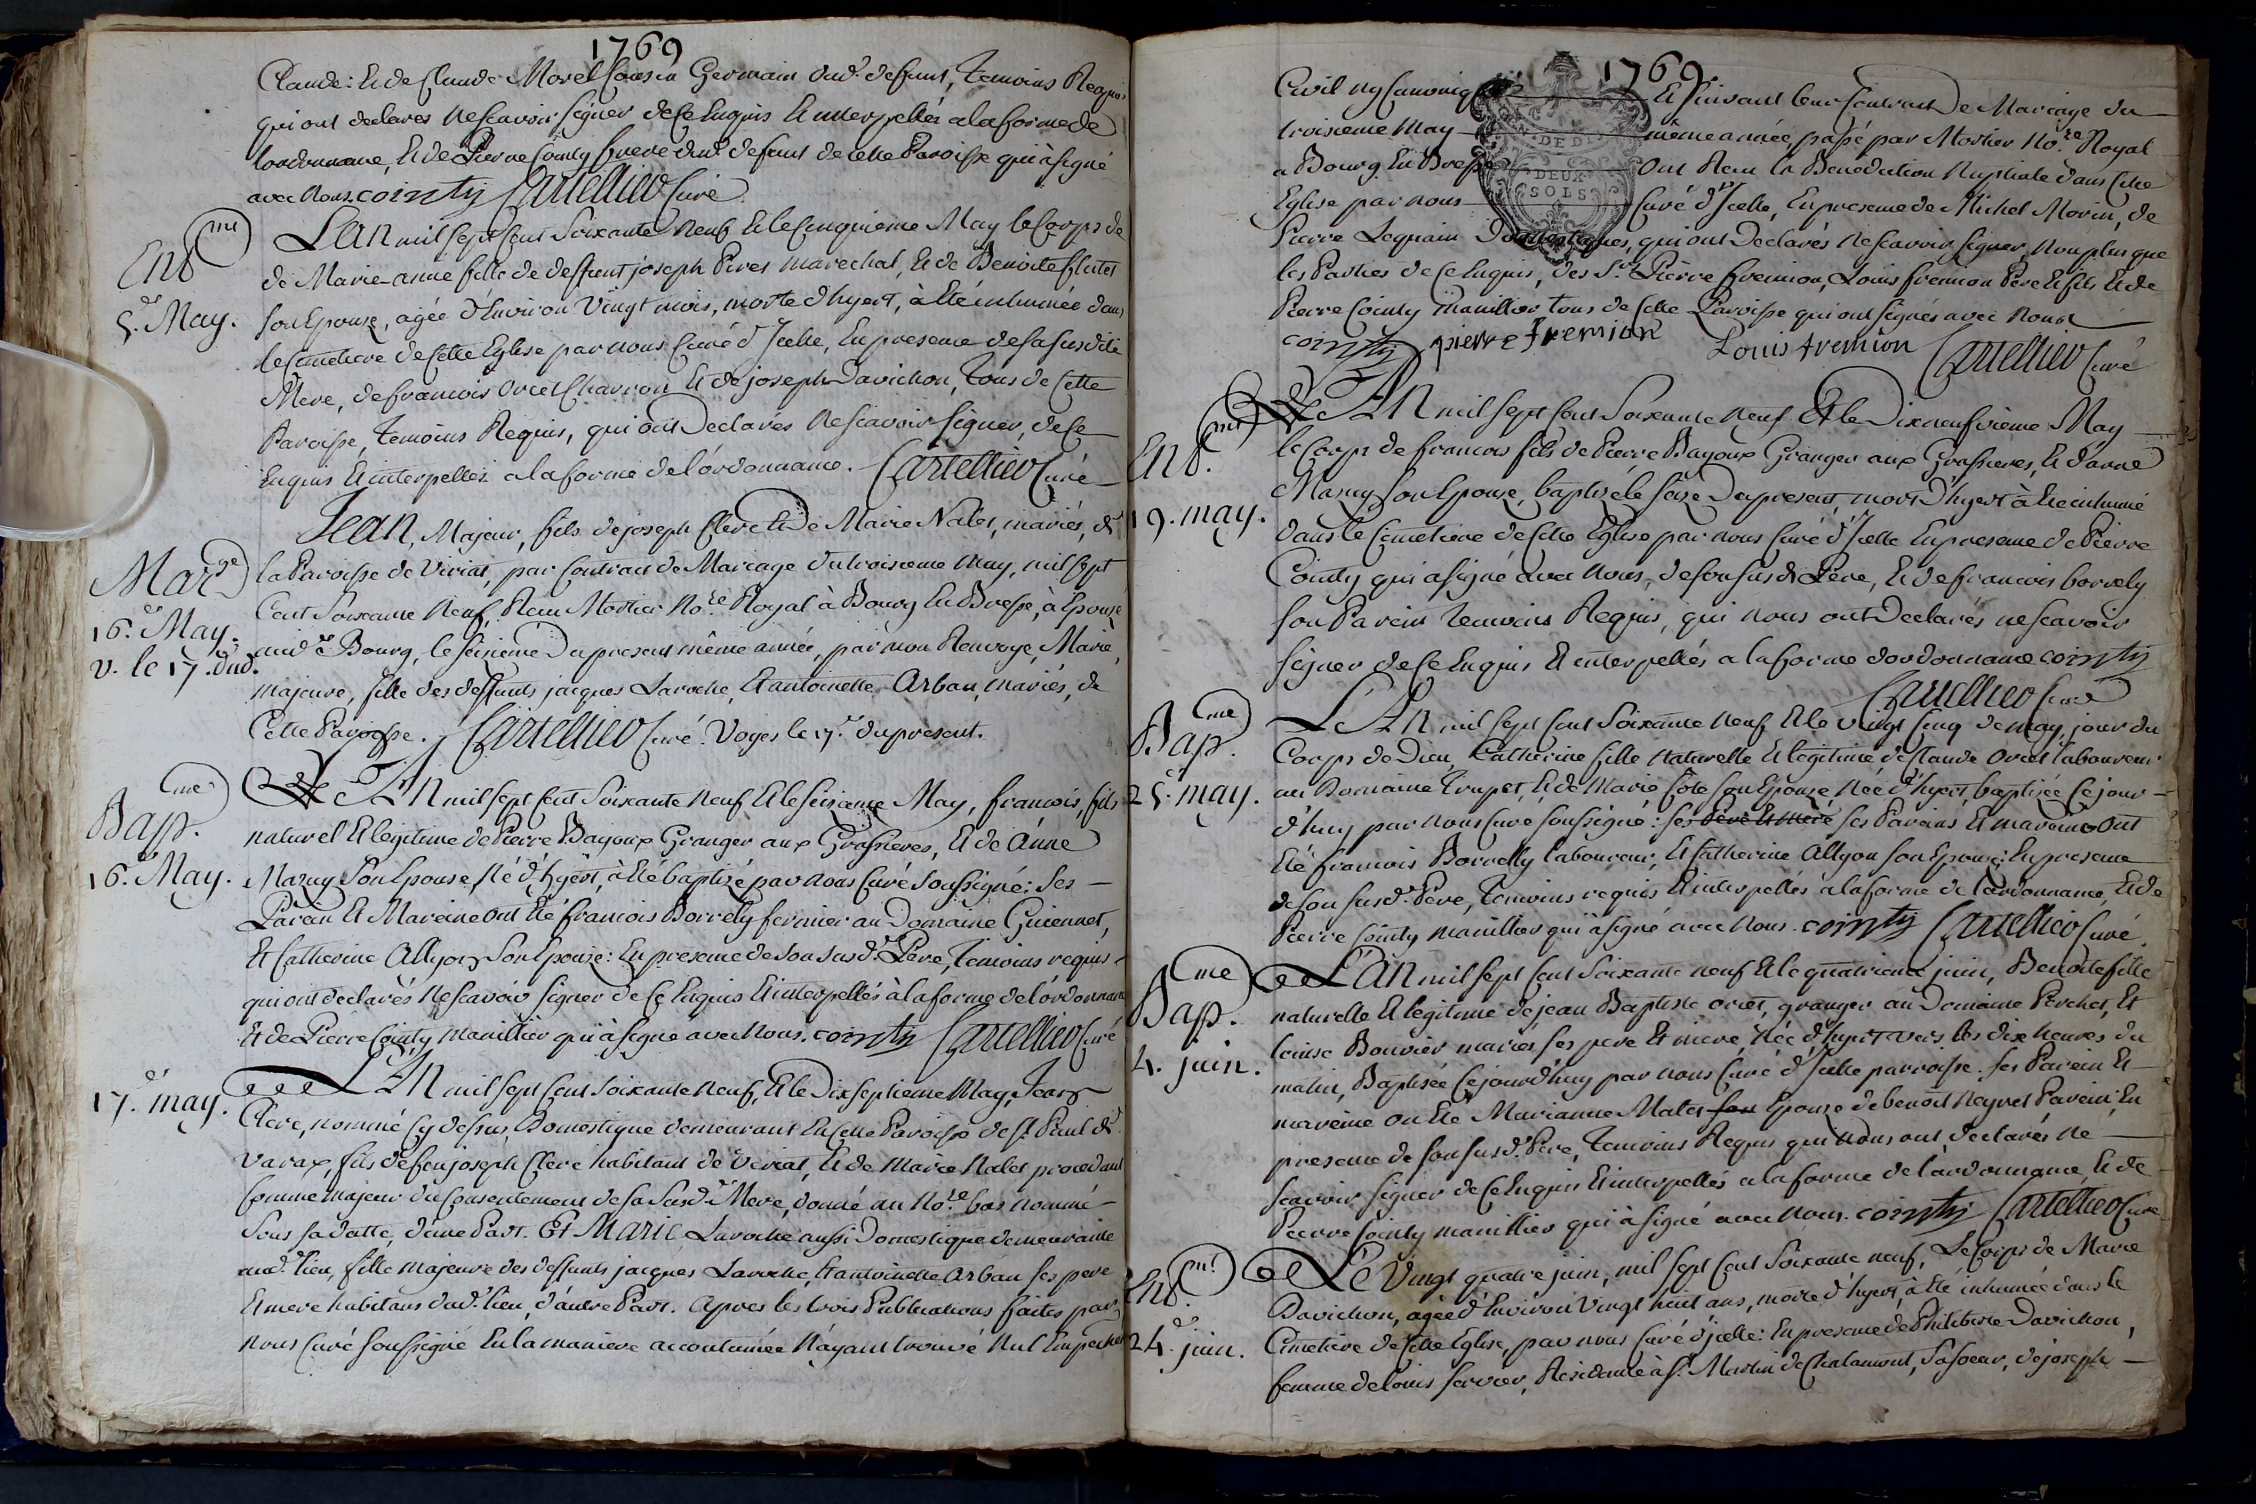 1769
Claude: Et de Claude Morel Cousin Germain dud. deffunt, Temoins Requis
qui ont declarés Ne Scavoir signer de Ce Enquis Et interpellés a la forme de
lordonnance, Et de Pierre Cointy frere dud. defunt de cette Paroisse qui à signé
avec Nous. cointy Cartellier Curé
Ent.me
5.e May.
L'AN mil Sept Cent Soixante Neuf Et le Cinquieme May le Corps de
de Marie-anne fille de deffunt joseph Peret marechal, Et de Benoite
Son Epouse, agée d'Environ Vingt mois, morte d'hyert, à Eté inhumée dans
le Cimetiere de Cette Eglise par nous Curé d'Icelle, En presence de sa susdite
Mere, de francois Orcet Charron Et de joseph Davichon, Tous de Cette
Paroisse, Temoins Requis, qui ont Declarés Ne Scavoir signer, de Ce
Enquis Et interpellés a la forme de l'ordonnance. Cartellier Curé
Mar.ge
16.e May.
v. le 17. dud.
Jean, Majeur, fils de joseph Clerc Et de Marie Nalet, mariés, de
la Paroisse de Viriat, par Contract de Mariage du troisieme May, mil Sept
Cent Soixante Neuf, Recu Mortier No.re Royal à Bourg En Bresse, à Epousé
aud. Bourg, le Seizieme Du present même année, par mon Renvoye, Marie,
majeure, fille des deffunts jacques Laroche, Et antoinette Arban, mariés, de
Cette Paroisse. Cartellier Curé. Voyés le 17.e du present.
Bap.me
16.e May.
L'AN mil sept Cent Soixante Neuf Et le Seizieme May, francois, fils
naturel Et legitime de Pierre Bayoux Granger aux Grassieres, Et de Anne
Mazuy Son Epouse, Né d'hyert, à Eté baptisé par Nous Curé Soussigné: Ses
Parain Et Mareine ont Eté francois Borrely fermier au Domaine Guiennet,
Et Catherine Allyon Son Epouse: En presence de Son susd. Pere, Temoins requis
qui ont declarés Ne Scavoir signer de Ce Enquis Et interpellés à la forme de l'ordonnance
Et de Pierre Cointy Manillier qui à signé avec Nous. cointy Cartellier Curé
17.e may.
L'AN mil Sept Cent Soixante Neuf, Et le Dix septieme May, Jean
Clerc, nommé Cy dessus, Domestique demeurant En Cette Paroisse de St. Paul de
Varax, fils de feu joseph Clerc habitant de Viriat, Et de Marie Nalet procedant
Comme majeur du Consentement de sa Susd.e Mere, donné au No.re bas nommé
Sous sa datte, d'une Part. Et MARIE Laroche aussi Domestique demeurante
aud. lieu, fille majeure des deffunts jacques Laroche, Et antoinette Arban ses pere
Et mere habitans dud. lieu, d'autre Part. Apres les trois Publications faites par
Nous Curé Soussigné En la maniere accoutumée N'ayant trouvé Nul Empechement
1769
Civil ny Canonique Et suivant leur Contract De Mariage du
troisieme May même année, passé par Mortier No.re Royal
a Bourg En Bresse Ont Recu la Benediction Nuptiale dans Cette
Eglise par nous Curé d'Icelle, En presence de Michel Morin, de
DEUX
SOLS
Pierre Lequain Domestiques, qui ont Declarés Ne Scavoir signer, Non plus que
les Parties de Ce Enquis, des Srs. Pierre fremion, Louis fremion Pere Et fils Et de
Pierre Cointy Manillier tous de Cette Paroisse qui ont signés avec Nous
cointy pierre fremion Louis fremion Cartellier Curé
Ent.me
19. may.
L'AN mil Sept Cent Soixante Neuf Et le Dix neufvieme May
le Corps de francois fils de Pierre Bayoux Granger aux Grassieres, Et d'anne
Mazuy Son Epouse, baptisé le Seize Du present, mort d'hyert à Eté inhumé
dans le Cimetiere de Cette Eglise par nous Curé d'Icelle En presence de Pierre
Cointy qui a signé avec Nous, de son susd. Pere, Et de francois borrely
Son Parein Temoins Requis, qui Nous ont Declarés ne scavoir
signer de Ce Enquis Et interpellés a la forme dordonnance cointy
Cartellier Curé
Bap.me
25. may.
L'AN mil Sept Cent Soixante Neuf Et le Vingt Cinq de may, jour du
Corps de Dieu, Catherine fille Naturelle Et legitime de Claude Orcet laboureur
au Domaine Trupet, Et de Marie Côte Son Epouse, Née d'hyert, baptisée Ce jour
d'huy par Nous Curé Soussigné: ses Pere Et Mere ses Pareins Et mareine Ont
Eté francois Borrelly laboureur, Et Catherine Allyon Son Epouse: En presence
de son susd. Pere, Temoins requis Et interpellés a la forme de l'ordonnance, Et de
Pierre Cointy Manillier qui à signé avec Nous. cointy Cartellier Curé.
Bap.me
4. juin.
L'AN mil Sept Cent Soixante neuf Et le quatrieme juin, Benoite fille
naturelle Et legitime de jean Baptiste orcet, granger au Domaine Perchet, Et
louise Bouvier mariés ses pere Et mere, Née d'hyert vers les dix heures du
matin, Baptisée Ce jourd'huy par Nous Curé d'Icelle parroisse. ses Parein Et
mareine on Eté Marianne Malet son Epouse de benoit Neyret Parein; En
presence de son susd. Pere, Temoins Requis qui Nous ont declarés Ne
scavoir signer de Ce Enquis Et interpellés a la forme de l'ardonnance, Et de
Pierre Cointy manillier qui à signé avec Nous. cointy Cartellier Curé
Ent.mt
24.e juin.
Le Vingt quatre juin, mil Sept Cent Soixante neuf, Le Corps de Marie
Davichon, agée d'Environ Vingt huit ans, morte d'hyert, à Eté inhumée dans le
Cimetiere de Cette Eglise, par nous Curé d'jcelle: En presence de Philiberte Davichon,
femme de louis fervier, Residente à St. Martin de Chalamont, Sa Soeur, de joseph